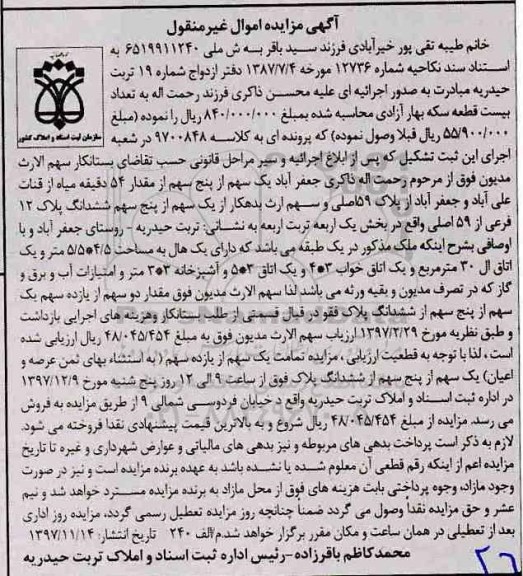 آگهی مزایده اموال غیر منقول
خانم طیبه تقی پور خیرآبادی فرزند سید باقر به ش ملی ۶۵۱۹۹۱۱۲۴۰ به
استناد سند نکاحیه شماره ۱۲۷۳۶ مورخه ۱۳۸۷/۷/۴ دفتر ازدواج شماره ۱۹ تربت
حیدریه مبادرت به صدور اجرائیه ای علیه محسن ذاکری فرزند رحمت اله به تعداد
بیست قطعه سکه بهار آزادی محاسبه شده بمبلغ ۸۴۰/۰۰۰/۰۰۰ ریال را نموده (مبلغ
۵۵/۹۰۰/۰۰۰ ریال قبلا وصول نموده) که پرونده ای به کلاسه ۹۷۰۰۸۴۸ در شعبه
سازمان ثبت اسناد و املاک کشور
اجرای این ثبت تشکیل که پس از ابلاغ اجرائیه و سیر مراحل قانونی حسب تقاضای بستانکار سهم الارث
مدیون فوق از مرحوم رحمت اله ذاکری جعفر آباد یک سهم از پنج سهم از مقدار ۵۴ دقیقه میاه از قنات
علی آباد و جعفر آباد از پلاک ۵۹اصلی و سهم ارث بدهکار از یک سهم از پنج سهم ششدانگ پلاک ۱۲
فرعی از ۵۹ اصلی واقع در بخش یک اربعه تربت اربعه به نشانی: تربت حیدریه - روستای جعفر آباد و با
اوصافی بشرح اینکه ملک مذکور در یک طبقه می باشد که دارای یک هال به مساحت ۴/۵*۵/۵ متر و یک
اتاق ال ۳۰ مترمربع و یک اتاق خواب ۳*۴ و یک اتاق ۳*۵ و آشپزخانه ۳*۳ متر و امتیازات آب و برق و
گاز که در تصرف مدیون و بقیه ورثه می باشد لذا سهم الارث مدیون فوق مقدار دو سهم از یازده سهم یک
سهم از پنج سهم از ششدانگ پلاک فقو در قبال قسمتی از طلب بستانکار وهزینه های اجرایی بازداشت
و طبق نظریه مورخ ۱۳۹۷/۲/۲۹ ارزیاب سهم الارث مدیون فوق به مبلغ ۴۸/۰۴۵/۴۵۴ ریال ارزیابی شده
است ، لذا با توجه به قطعیت ارزیابی ، مزایده تمامت یک سهم از یازده سهم ( به استثناء بهای ثمن عرصه و
اعیان) یک سهم از پنج سهم از ششدانگ پلاک فوق از ساعت ۹ الی ۱۲ روز پنج شنبه مورخ ۱۳۹۷/۱۲/۹
در اداره ثبت اسناد و املاک تربت حیدریه واقع د خیابان فردوسی شمالی ۹ از طریق مزایده به فروش
می رسد. مزایده از مبلغ ۴۸/۰۴۵/۴۵۴ ریال شروع و به بالاترین قیمت پیشنهادی نقدا فروخته می شود.
لازم به ذکر است پرداخت بدهی های مربوطه و نیز بدهی های مالیاتی و عوارض شهرداری و غیره تا تاریخ
مزایده اعم از اینکه رقم قطعی آن معلوم شده یا نشده باشد به عهده برنده مزایده است و نیز در صورت
وجود مازاد، وجوه پرداختی بابت هزینه های فوق از محل مازاد به برنده مزایده مسترد خواهد شد و نیم
عشر و حق مزایده نقداً وصول می گردد ضمناً چنانچه روز مزایده تعطیل رسمی گردد، مزایده روز اداری
بعد از تعطیلی در همان ساعت و مکان مقرر برگزار خواهد شد.م/الف ۲۴۰ تاریخ انتشار: ۱۳۹۷/۱۱/۱۴
محمدکاظم باقرزاده - رئیس اداره ثبت اسناد و املاک تربت حیدریه
۲۶